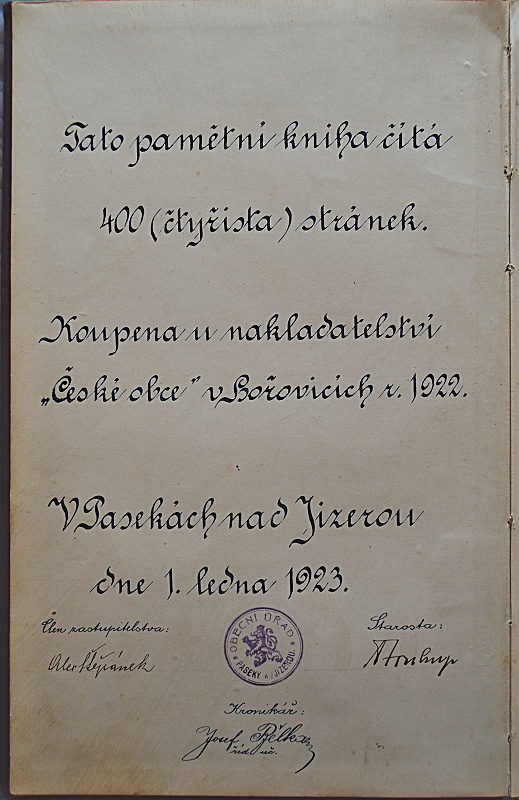 Tato pamětní kniha čítá
400 (čtyřista) stránek.
Koupena u nakladatelství
„České obce" v Hořovicích r. 1922.
V Pasekách nad Jizerou
dne 1. ledna 1923.
Člen zastupitelstva:
Starosta:
OBECNÍ ÚŘAD
PASEKY n./JIZEROU.
Kronikář:
Josef
říd. uč.